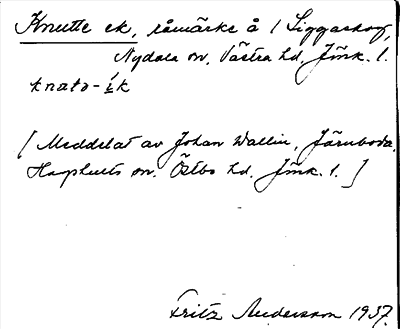 Knutte ek, råmärke å / Siggaskog,
Nydala sn. Västra hd. Jönk. l.
knatə-ík
[ Meddelat av Johan Wallin, Järnboda,
Hagshults sn. Östbo hd. Jönk. l. ]
Fritz Andersson 1937.